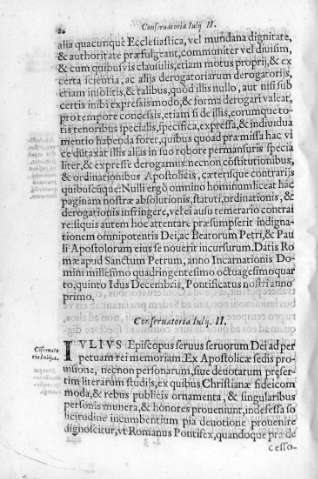 80 Conseruatoria Iulij II.
alia quacunque Ecclesiastica, vel mundana dignitate,
& authoritate præfulgeant, communiter vel diuisim,
& cum quibusvis clausulis, etiam motus proprij, & ex
certa scientia, ac aliis derogatoriarum derogatorijs,
etiam insolitis, & talibus, quod illis nullo, aut nisi sub
certis inibi expressis modo, & forma derogari valeat,
pro tempore concessis, etiam si de illis, eorumque to-
tis tenoribus specialis, specifica, expressa, & indiuidua
mentio habenda foret, quibus quoad præmissa hac vi
ce dũtaxat illis aliàs in suo robore permansuris specia
liter, & expressè derogamus: necnon cõstitutionibus,
& ordinationibus Apostolicis, cæterisque contrarijs
quibuscũque: Nulli ergò omnino hominum liceat hãc
paginam nostræ absolutionis, statuti, ordinationis, &
derogationis infringere, vel ei ausu temerario contrai
re: si quis autem hoc attentare præsumpserit indigna-
tionem omnipotentis Dei, ac Beatorum Petri, & Pau
li Apostolorum eius se nouerit incursurum. Datis Ro
mæ apud Sanctum Petrum, anno Incarnationis Do-
mini millesimo quadringentesimo octuagesimo quar
to, quinto Idus Decembris, Pontificatus nostri anno
primo.
Conseruatoria Iulij. II.
Cõseruato
ria Iulij. 2.
IVLIVS Episcopus seruus seruorum Dei ad per
petuam rei memoriam. Ex Apostolicæ sedis pro-
uisione, necnon personarum, siue deuotarum preser-
tim literarum studiis, ex quibus Christianæ fidei com
moda, & rebus publicis ornamenta, & singularibus
personis munera, & honores proueniunt, indefessa so
licitudine incumbentium pia deuotione prouenire
dignoscitur, vt Romanus Pontifex, quandoque præde
cesso-